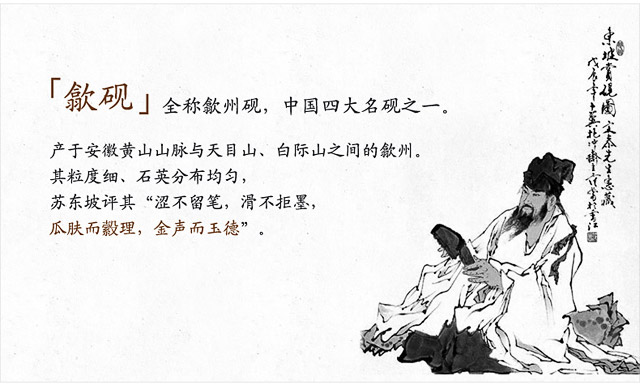 「歙砚」全称歙州砚，中国四大名砚之一。
产于安徽黄山山脉与天目山、白际山之间的歙州。
其粒度细、石英分布均匀，
苏东坡评其“涩不留笔，滑不拒墨，
瓜肤而縠理，金声而玉德”。
东坡赏砚图